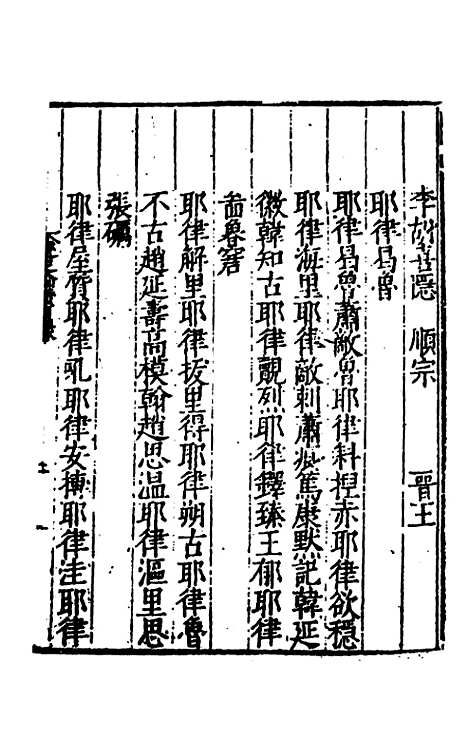 李胡 喜隱 順宗 晋王
耶律曷魯
耶律曷魯蕭敵魯耶律斜捏赤耶律欲穩
耶律海里耶律敵剌蕭痕篤康默記韓延
徽韓知古耶律覿烈耶律鐸臻王郁耶律
啚魯窘
耶律解里耶律拔里得耶律朔古耶律魯
不古趙延壽高模翰趙思温耶律漚里思
張礪
耶律屋質耶律吼耶律安摶耶律洼耶律